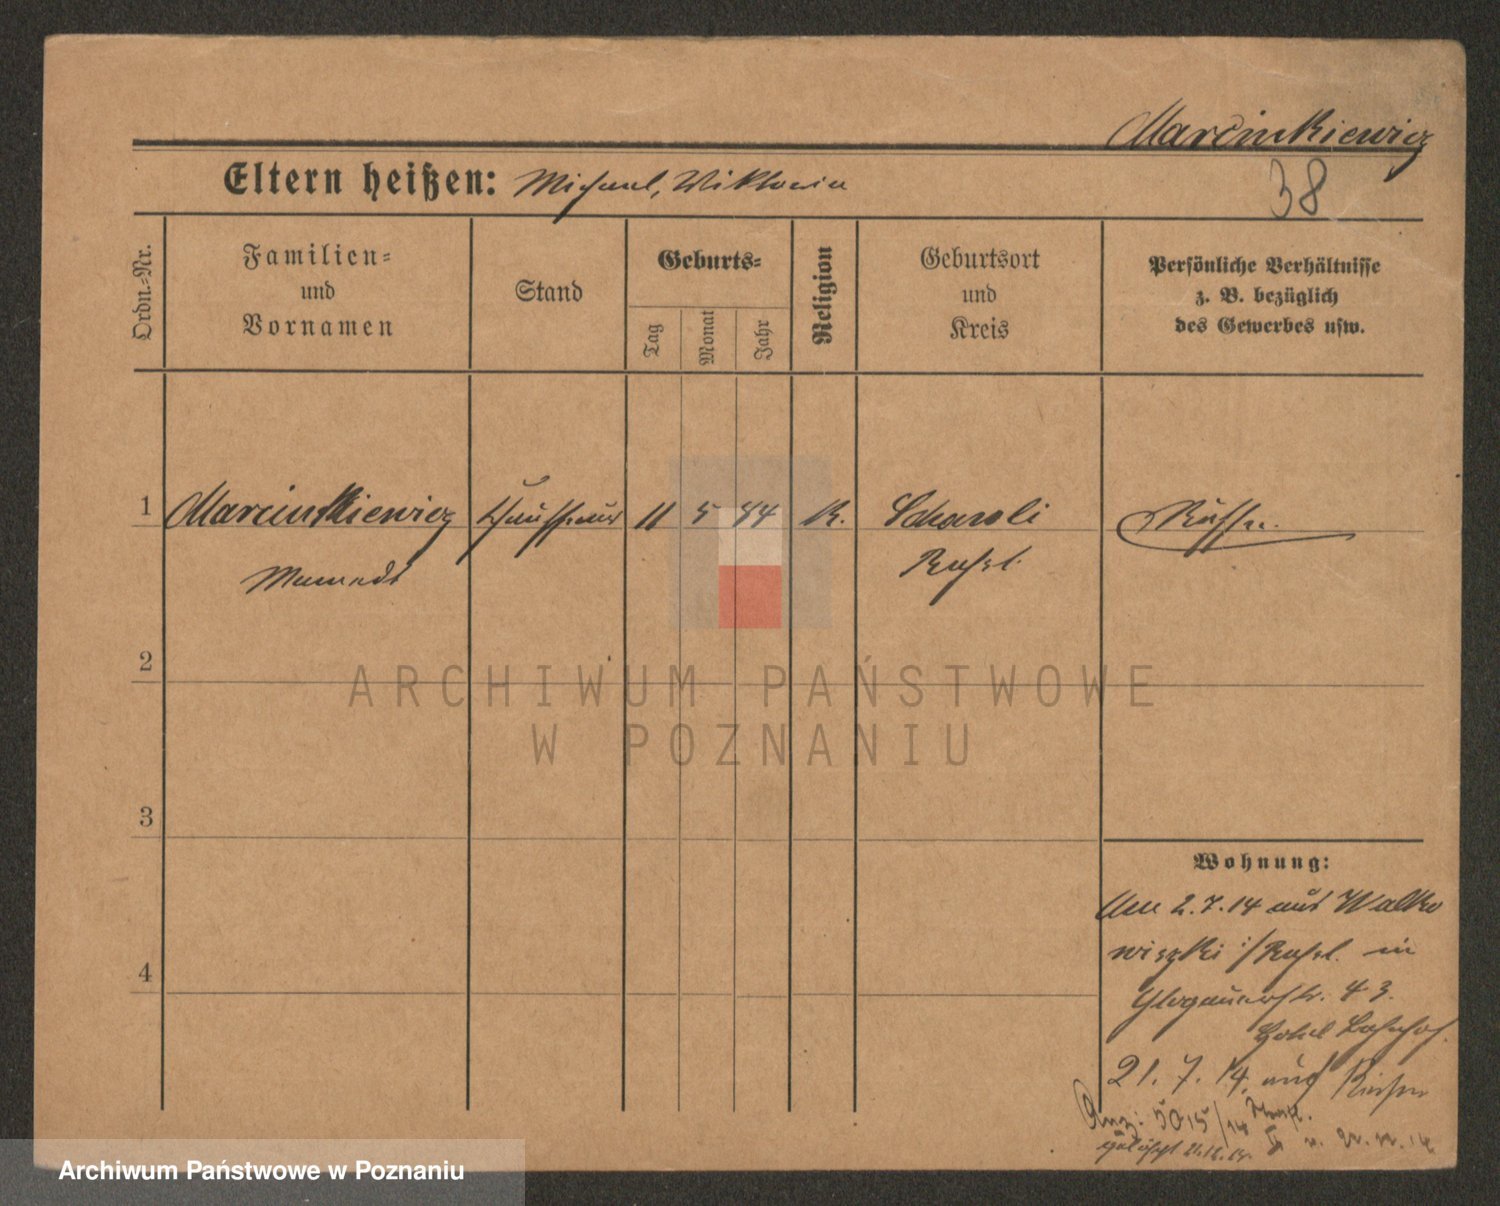 Marcinkiewicz
38
Eltern heißen: Michael, Wiktoria
Ordn.-Nr.
Familien-
und
Vornamen
Stand
Geburts-
Tag
Monat
Jahr
Religion
Geburtsort
und
Kreis
Persönliche Verhältnisse
z. B. bezüglich
des Gewerbes usw.
1 Marcinkiewicz 11 5 84 K. Russe.
2
3
4
Wohnung:
2.7.14 aus Walko
wiszki i/Russl. in
Glogauerstr. 43.
Hotel Bahnhof.
21. 7. 14.
ARCHIWUM PAŃSTWOWE
W POZNANIU
Archiwum Państwowe w Poznaniu